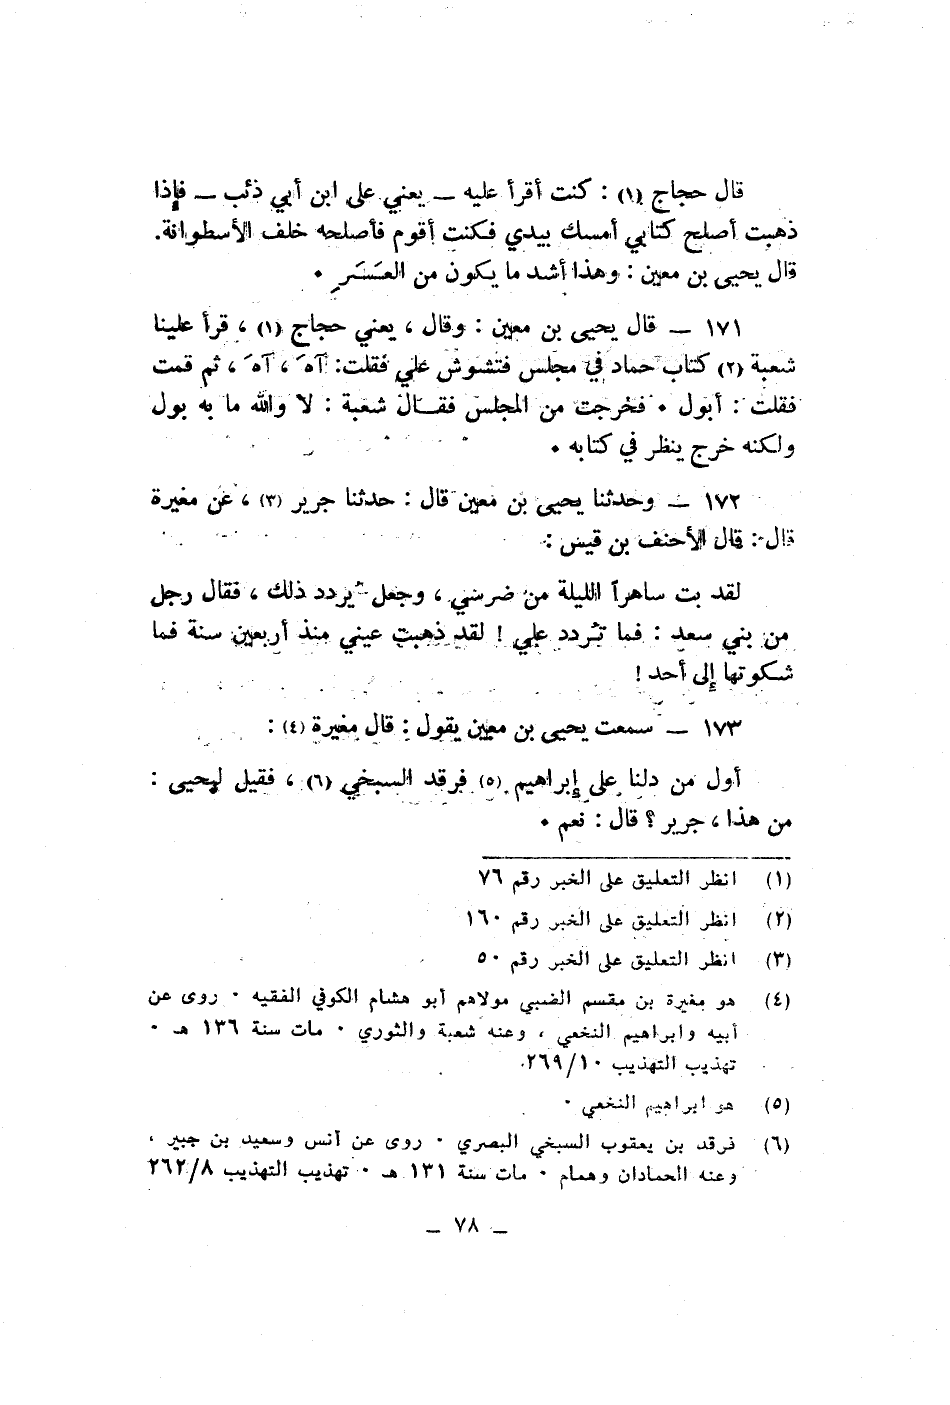 قال حجاج (١) : كنت أقرأ عليه ــ يعني على ابن أبي ذئب ــ فإذا
ذهبت أصلح كتابي أمسك بيدي فكنت أقوم فأصلحه خلف الأسطوانة.
قال يحيى بن معين : وهذا أشد ما يكون من العَسَر .
١٧١ ــ قال يحيى بن معين : وقال ، يعني حجاج (١) ، قرأ علينا
شعبة (٢) كتاب حماد في مجلس فتشوش علي فقلت: آه ، آه ، ثم قمت
فقلت : أبول . فخرجت من المجلس فقــال شعبة : لا والله ما به بول
ولكنه خرج ينظر في كتابه .
١٧٢ ــ وحدثنا يحيى بن معين قال : حدثنا جرير (٣) ، عن مغيرة
قال : قال الأحنف بن قيس :
لقد بت ساهراً الليلة من ضرسي ، وجعل يردد ذلك ، فقال رجل
من بني سعد : فما تردد علي ! لقد ذهبت عيني منذ أربعين سنة فما
شكوتها إلى أحد !
١٧٣ ــ سمعت يحيى بن معين يقول : قال مغيرة (٤) :
أول من دلنا على إبراهيم (٥) فرقد السبخي (٦) ، فقيل ليحيى :
من هذا ، جرير ؟ قال : نعم .
(١) انظر التعليق على الخبر رقم ٧٦
(٢) انظر التعليق على الخبر رقم ١٦٠
(٣) انظر التعليق على الخبر رقم ٥٠
(٤) هو مغيرة بن مقسم الضبي مولاهم أبو هشام الكوفي الفقيه . روى عن
أبيه وابراهيم النخعي ، وعنه شعبة والثوري . مات سنة ١٣٦ هـ .
تهذيب التهذيب ٢٦٩/١٠.
(٥) هو ابراهيم النخعي .
(٦) فرقد بن يعقوب السبخي البصري . روى عن أنس وسعيد بن جبير ،
وعنه الحمادان وهمام . مات سنة ١٣١ هـ . تهذيب التهذيب ٢٦٢/٨
ــ ٧٨ ــ